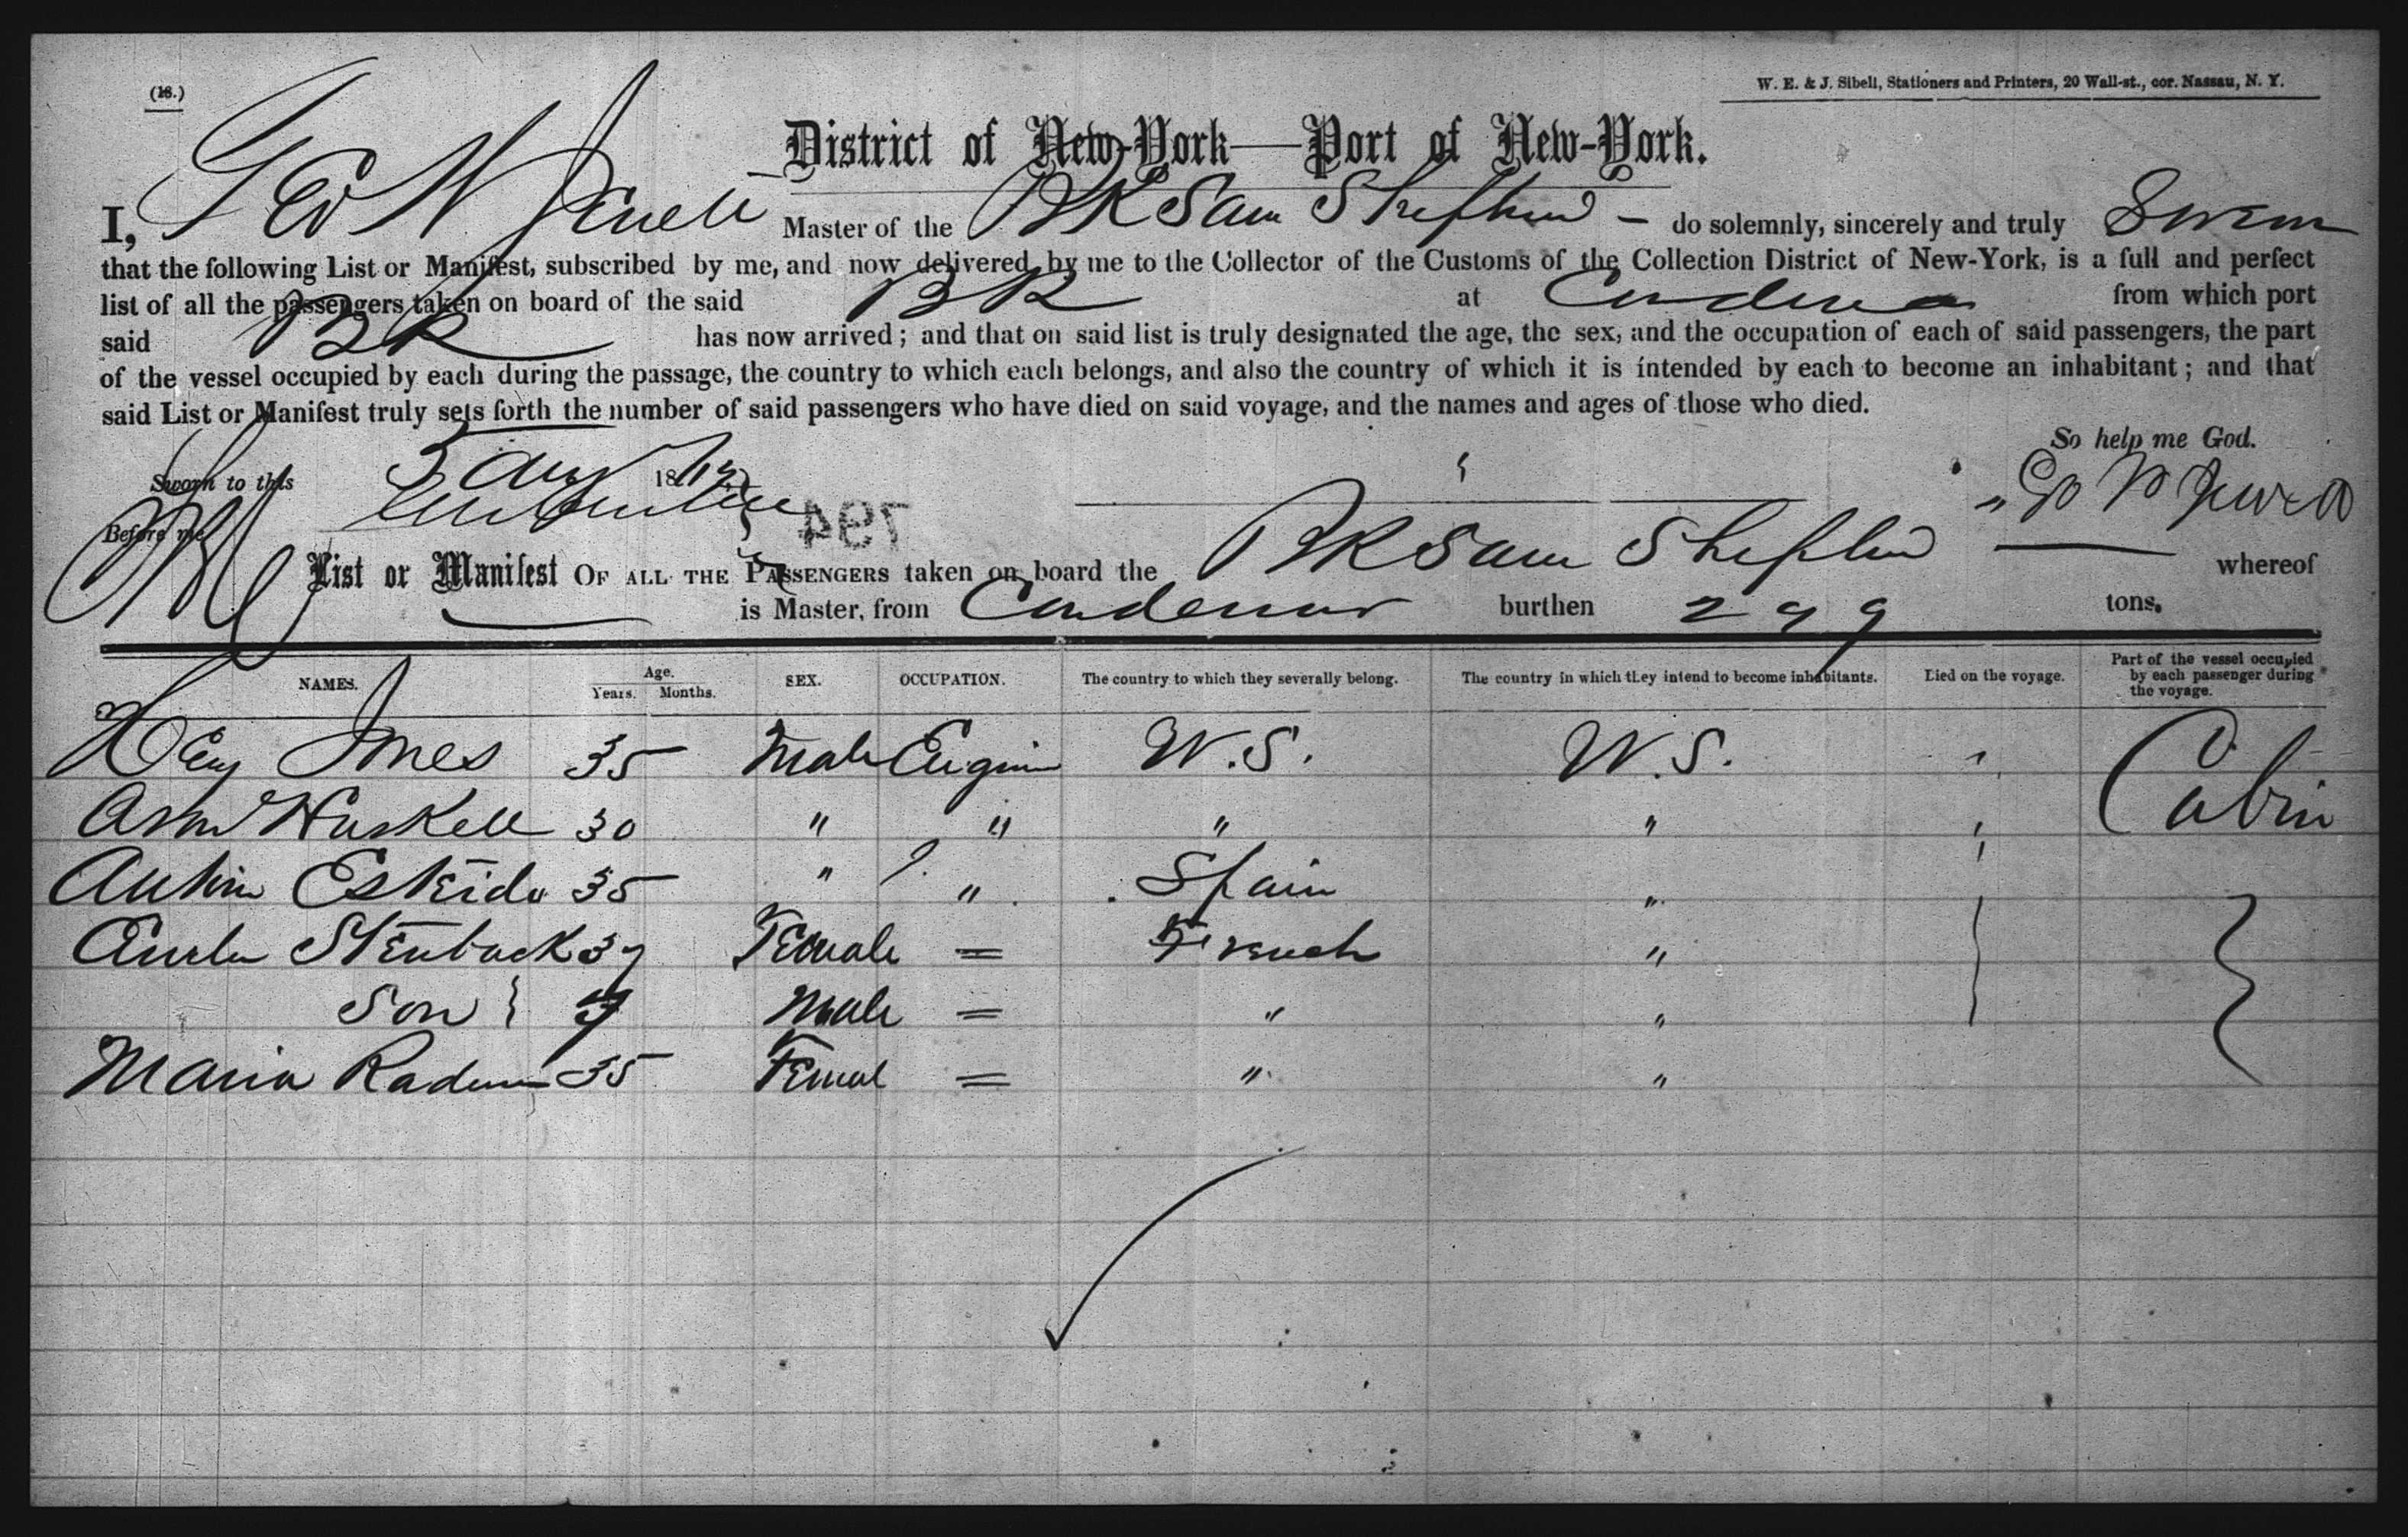 (18.)
W. E. & J. Sibell, Stationers and Printers, 20 Wall-st., cor. Nassau, N. Y.
District of New-York—Port of New-York.
I, Geo W Jewett Master of the BK Sam Shepherd – do solemnly, sincerely and truly Swear
that the following List or Manifest, subscribed by me, and now delivered by me to the Collector of the Customs of the Collection District of New-York, is a full and perfect
list of all the passengers taken on board of the said BK at Cardenas from which port
said BK has now arrived; and that on said list is truly designated the age, the sex, and the occupation of each of said passengers, the part
of the vessel occupied by each during the passage, the country to which each belongs, and also the country of which it is intended by each to become an inhabitant; and that
said List or Manifest truly sets forth the number of said passengers who have died on said voyage, and the names and ages of those who died.
So help me God.
Sworn to this 5 Aug 18
Geo W Jewett
Before me
List or Manifest OF ALL THE PASSENGERS taken on board the BK Sam Shepherd whereof
is Master, from Cardenas burthen 299 tons.
NAMES. Age. Years. Months. SEX. OCCUPATION. The country to which they severally belong. The country in which they intend to become inhabitants. Died on the voyage. Part of the vessel occupied by each passenger during the voyage.
Jones 35 Male Engin U.S. U.S. Cabin
Haskell 30 " " " "
Eskido 35 " " Spain "
Stenback 37 Female = French "
Son } 7 Male = " "
Maria 35 Femal = " "